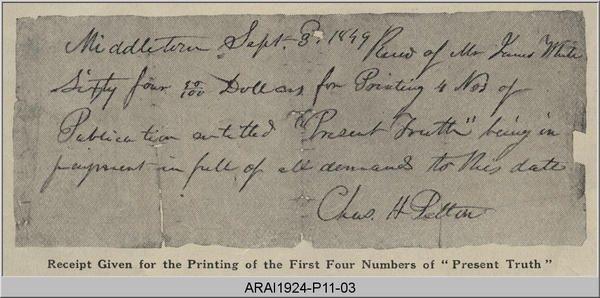 Middletown Sept. 3. 1849 Recd of Mr James White
Sixty four 50/100 Dollars for Printing 4 Nos of
Publication entitled "The Present Truth" being in
payment in full of all demands to this date
Chas. H Pelton
Receipt Given for the Printing of the First Four Numbers of "Present Truth"
ARAI1924-P11-03